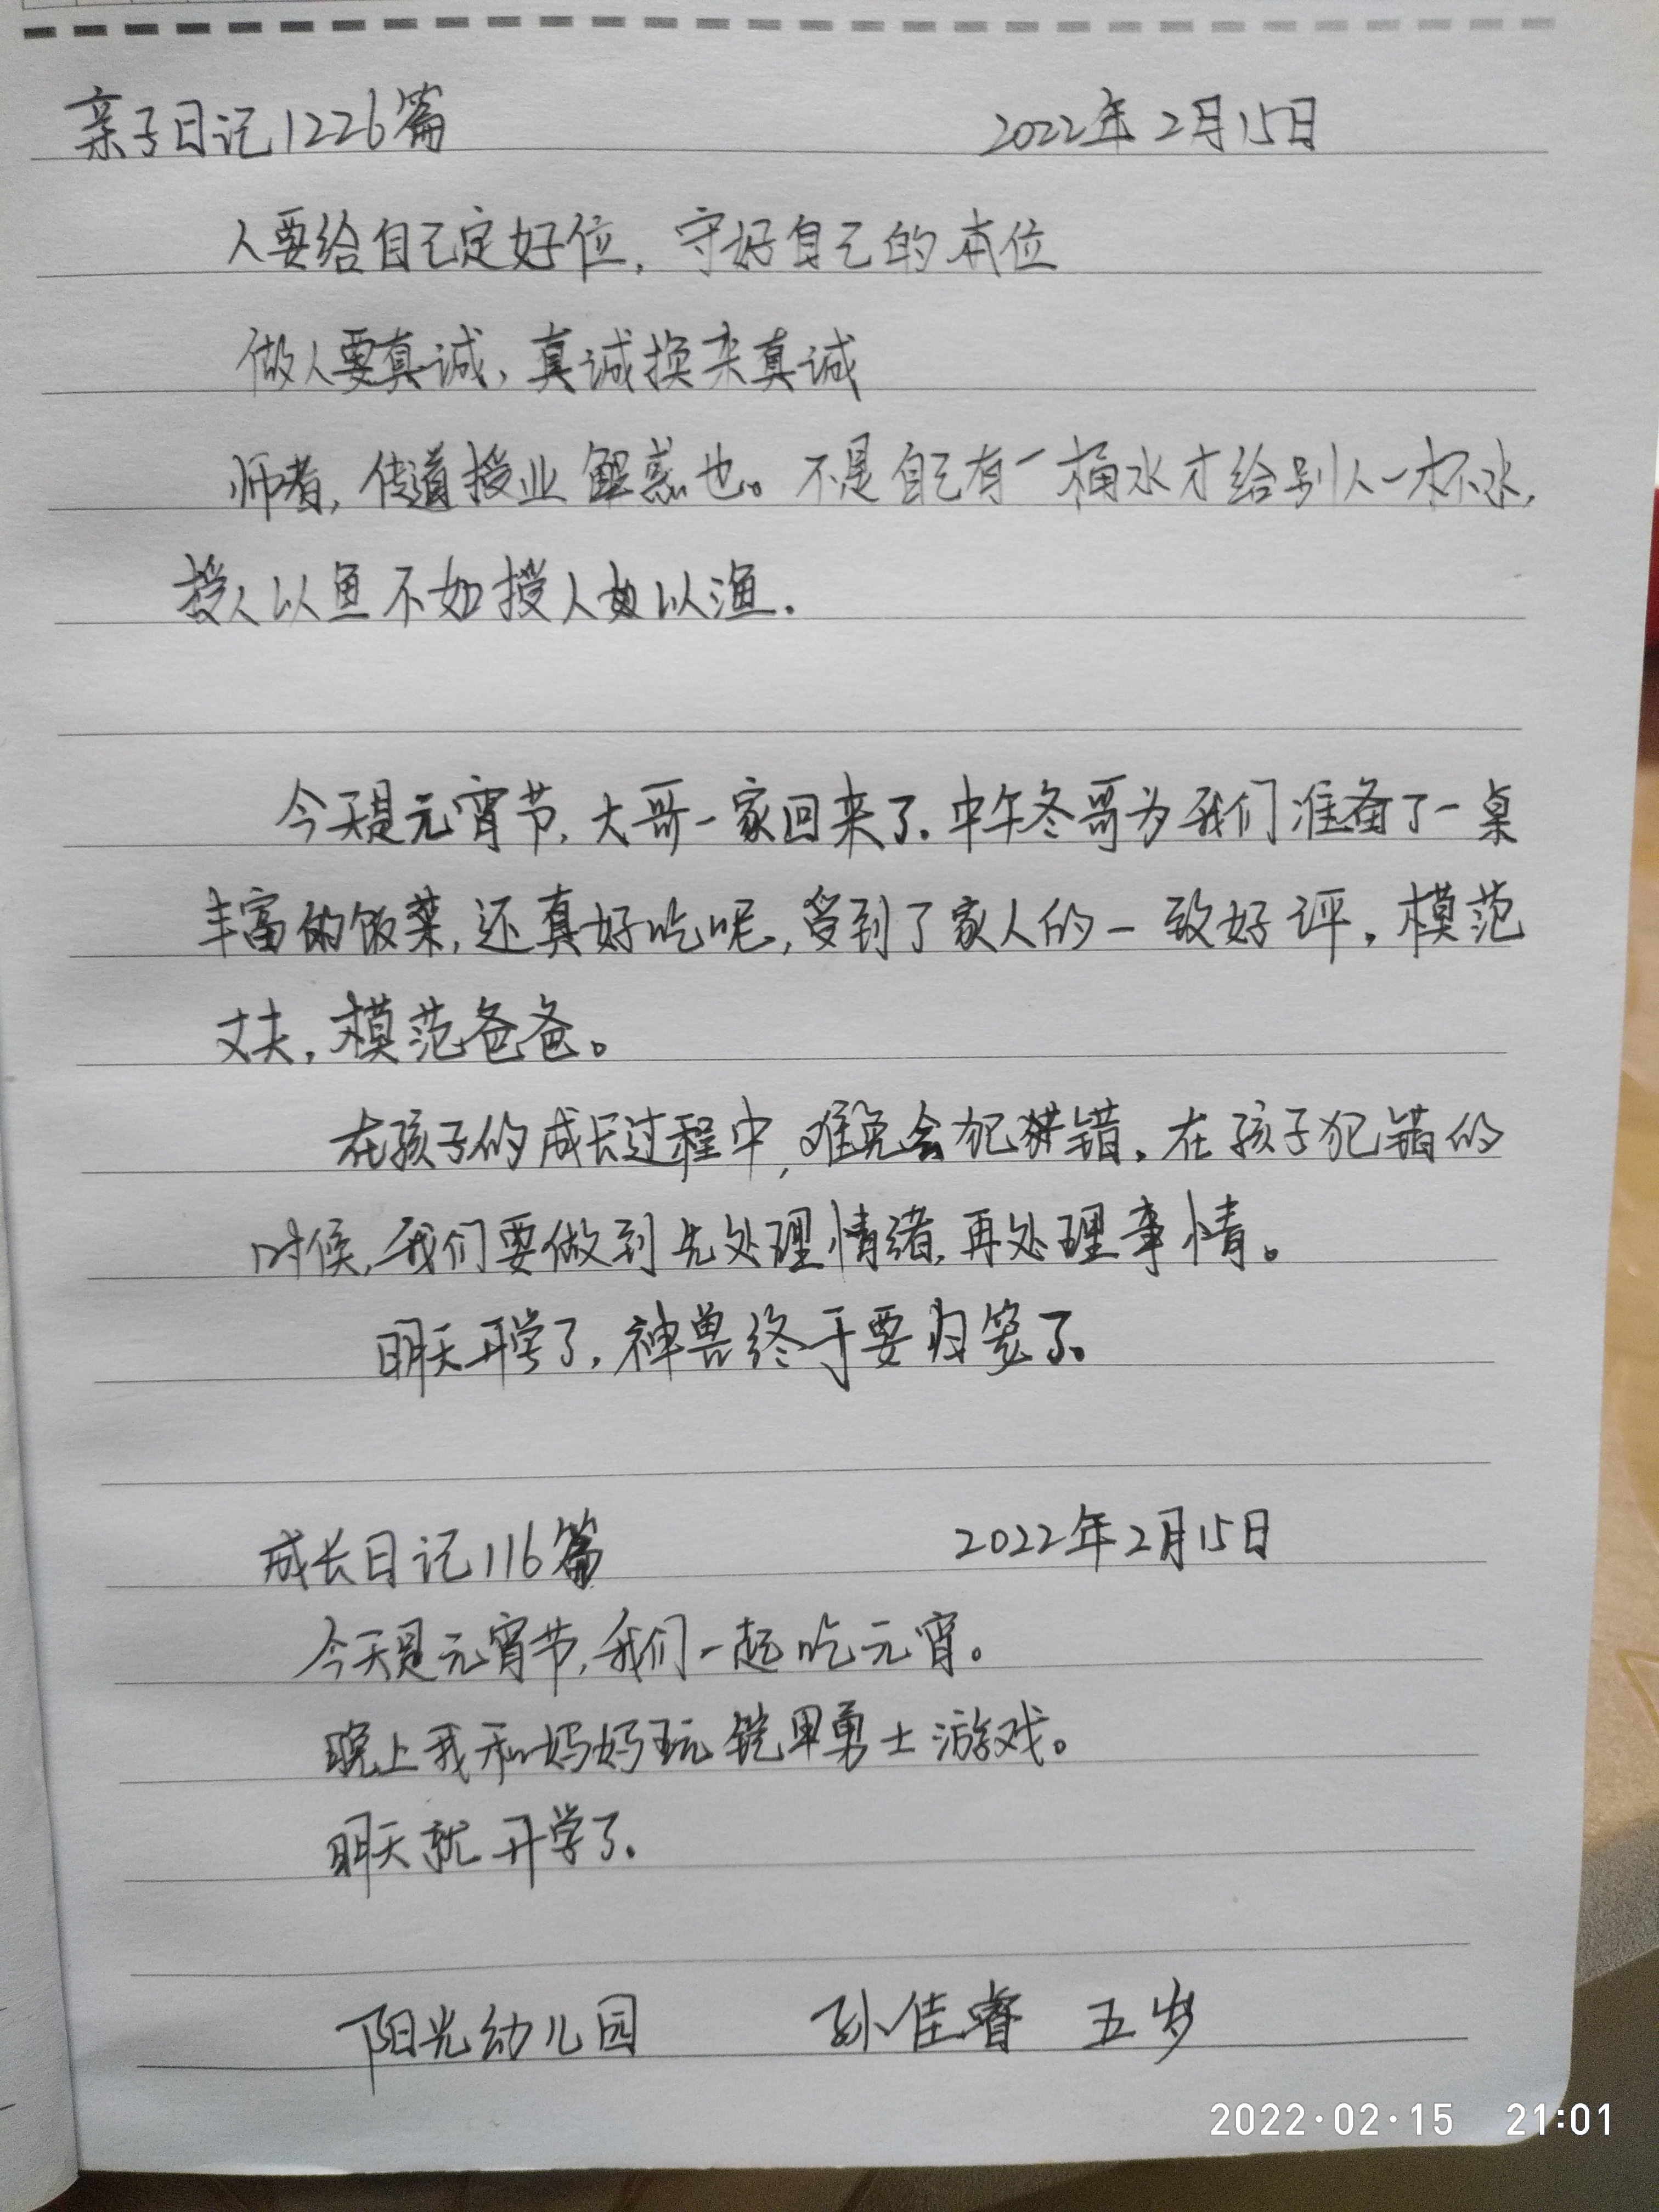 亲子日记1226篇 2022年2月15日
人要给自己定好位，守好自己的本位
做人要真诚，真诚换来真诚
师者，传道授业解惑也。不是自己有一桶水才给别人一杯水，
授人以鱼不如授人以渔.
今天是元宵节，大哥一家回来了.中午冬哥为我们准备了一桌
丰富的饭菜，还真好吃呢，受到了家人的一致好评。模范
丈夫，模范爸爸。
在孩子的成长过程中，难免会犯错。在孩子犯错的
时候，我们要做到先处理情绪，再处理事情。
明天开学了，神兽终于要归笼了。
成长日记116篇 2022年2月15日
今天是元宵节，我们一起吃元宵。
晚上我和妈妈玩铠甲勇士游戏。
明天就开学了.
阳光幼儿园 孙佳睿 五岁
2022·02·15 21:01